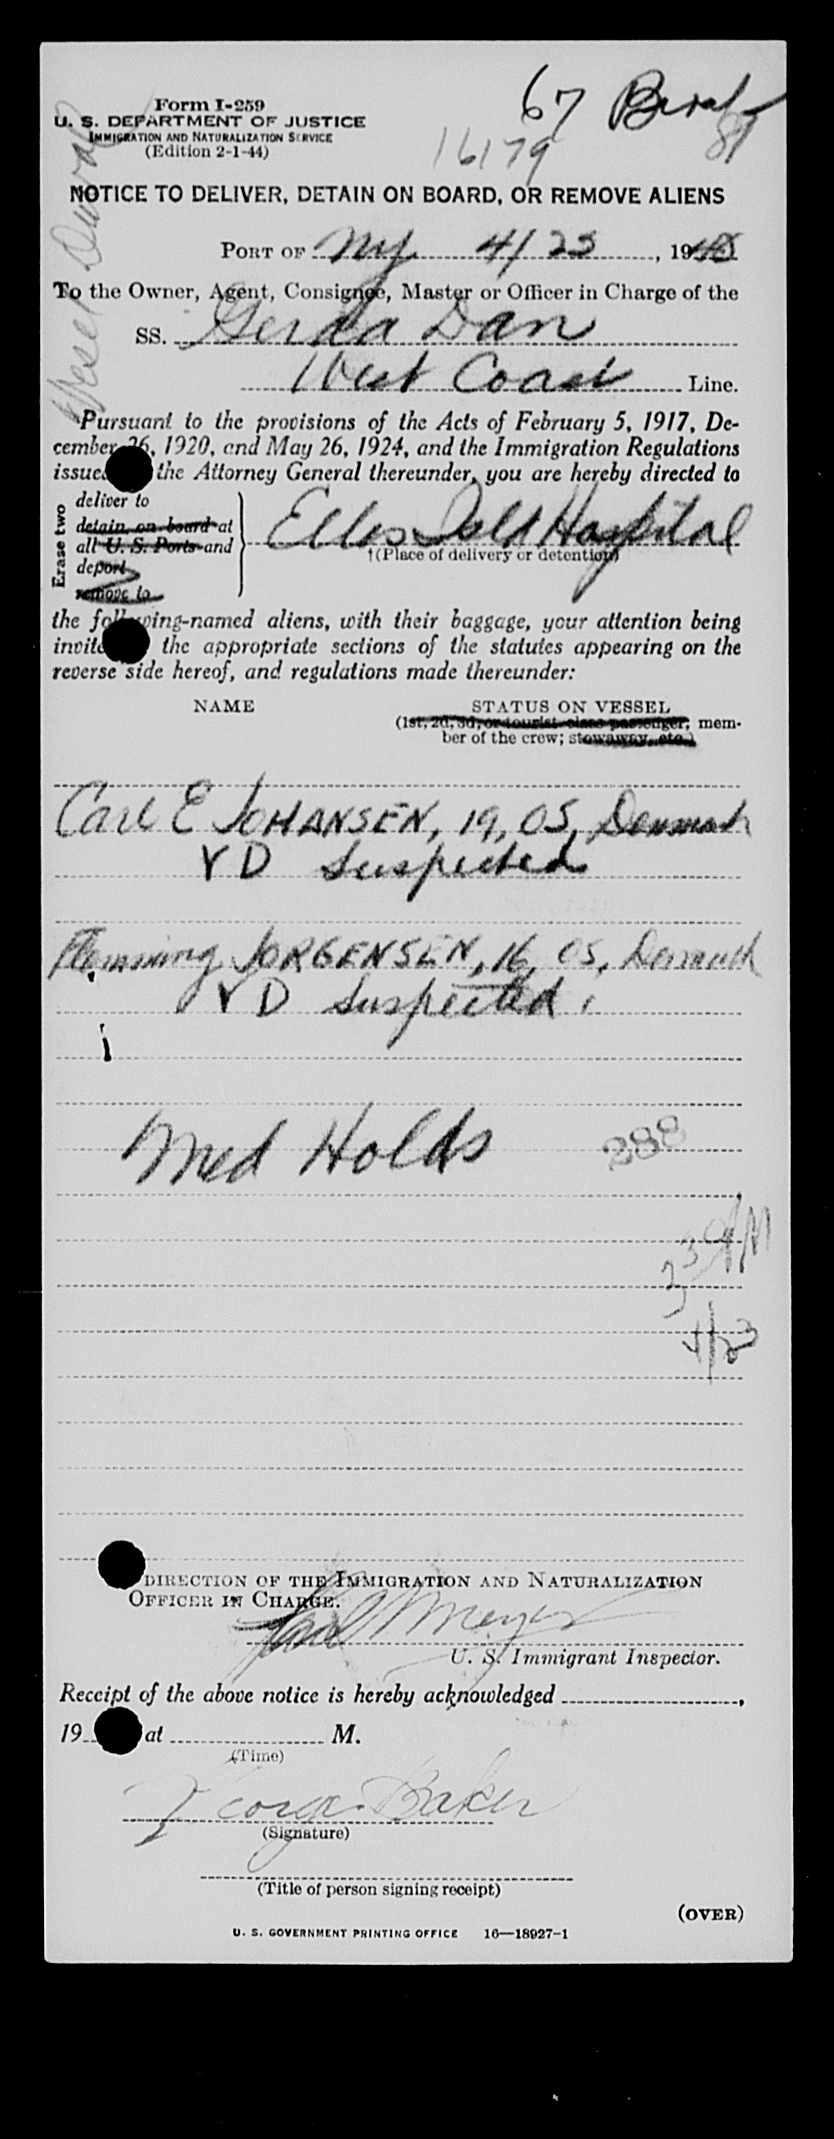 67
Form I-259
U. S. DEPARTMENT OF JUSTICE
IMMIGRATION AND NATURALIZATION SERVICE
(Edition 2-1-44)
16179
NOTICE TO DELIVER, DETAIN ON BOARD, OR REMOVE ALIENS
PORT OF NY 4/23, 19
To the Owner, Agent, Consignee, Master or Officer in Charge of the
SS. Gerda Dan
West Coast Line.
Pursuant to the provisions of the Acts of February 5, 1917, De-
cember 26, 1920, and May 26, 1924, and the Immigration Regulations
issued the Attorney General thereunder, you are hereby directed to
Erase two
deliver to
detain on board at
all U. S. Ports and
deport
remove to
Ellis Isld Hospital
†(Place of delivery or detention)
the following-named aliens, with their baggage, your attention being
invited the appropriate sections of the statutes appearing on the
reverse side hereof, and regulations made thereunder:
NAME STATUS ON VESSEL
(1st, 2d, 3d, or tourist class passenger; mem-
ber of the crew; stowaway, etc.)
Carl E JOHANSEN, 19, OS, Denmark
VD Suspected
Flemming JORGENSEN, 16, OS, Denmark
VD Suspected
Med Holds 288
4/23
DIRECTION OF THE IMMIGRATION AND NATURALIZATION
OFFICER IN CHARGE.
Meyer
U. S. Immigrant Inspector.
Receipt of the above notice is hereby acknowledged ,
19 at M.
(Time)
George Baker
(Signature)
(Title of person signing receipt)
(OVER)
U. S. GOVERNMENT PRINTING OFFICE 16—18927-1